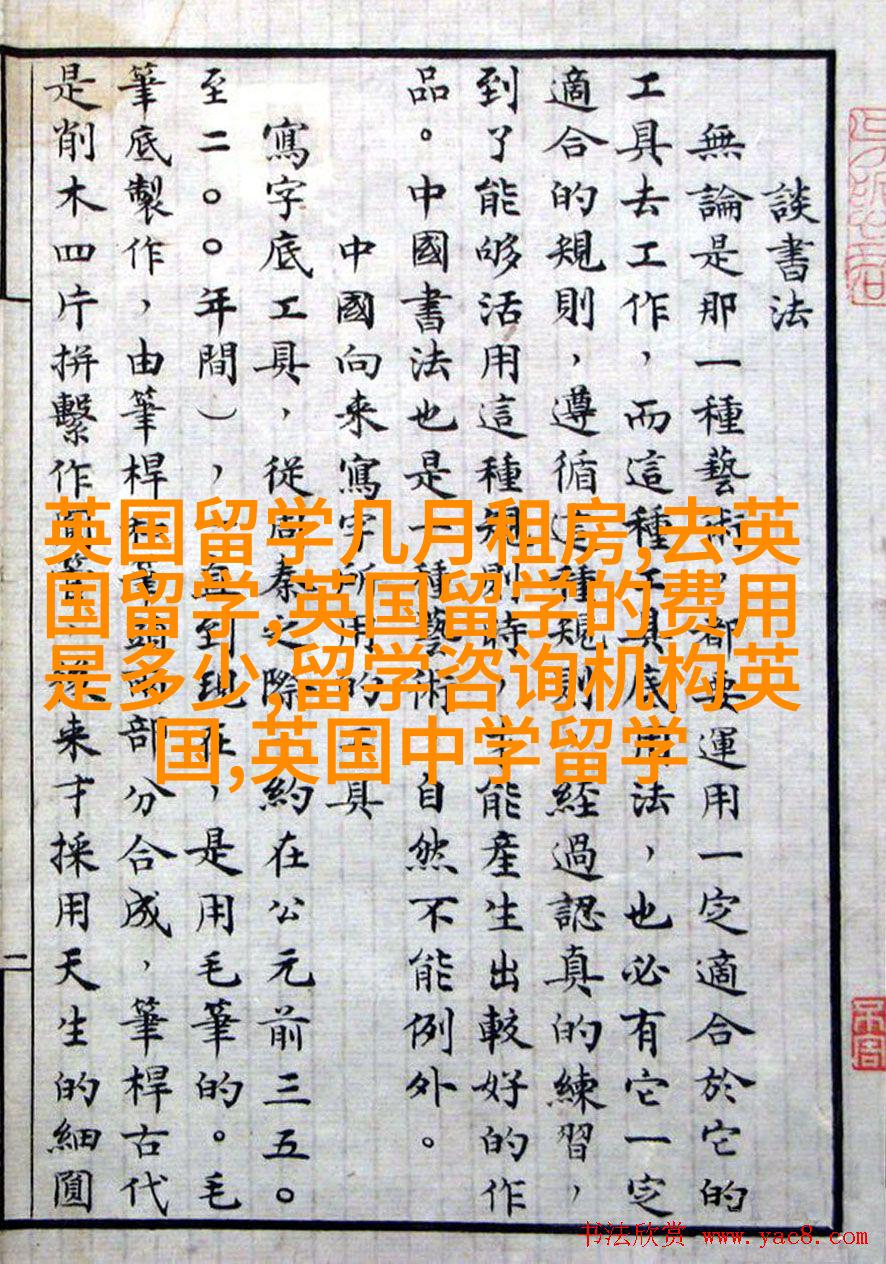 談書法
無論是那一種藝術，都要運用一定適合於它的
工具去工作，而這種工具底用法，也必有它一定
適合的規則，遵循這種規則，經過認真的練習，
到了能够活用這種規則時，才能產生出較好的作
品。中國書法也是一種藝術，自然不能例外。
中國向来寫字所用的工具
寫字底工具，從周秦之際（約在公元前三五〇
至二〇〇年間），一直到現在，是用毛筆的。毛
筆底製作，由筆桿和筆頭兩部分合成，筆桿古代
是削木四片拼繫作圓管，来才採用天生的細圓
二
英国留学几月租房,去英
国留学,英国留学的费用
是多少,留学咨询机构英
国,英国中学留学
书法欣赏 www.yac8.com